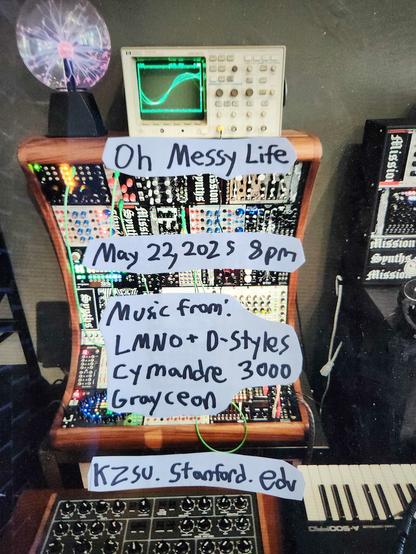 Oh Messy Life
May 22, 2025 8pm
Music from:
LMNO + D-Styles
Cymandre 3000
Grayceon
KZSU. Stanford. edu
Mission
Mission
Synths
Mission
Synths